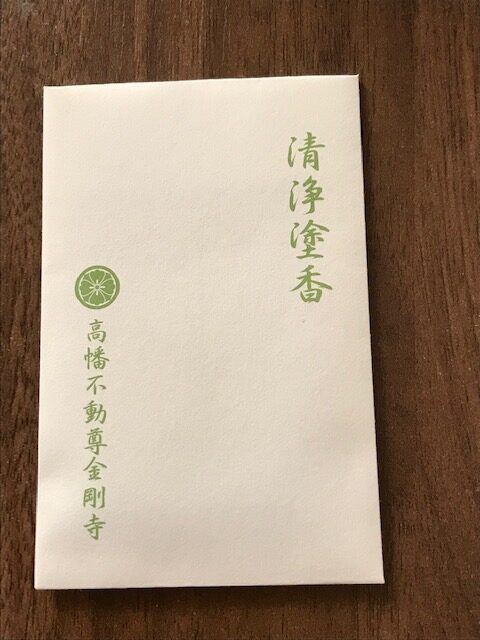 清浄塗香
高幡不動尊金剛寺